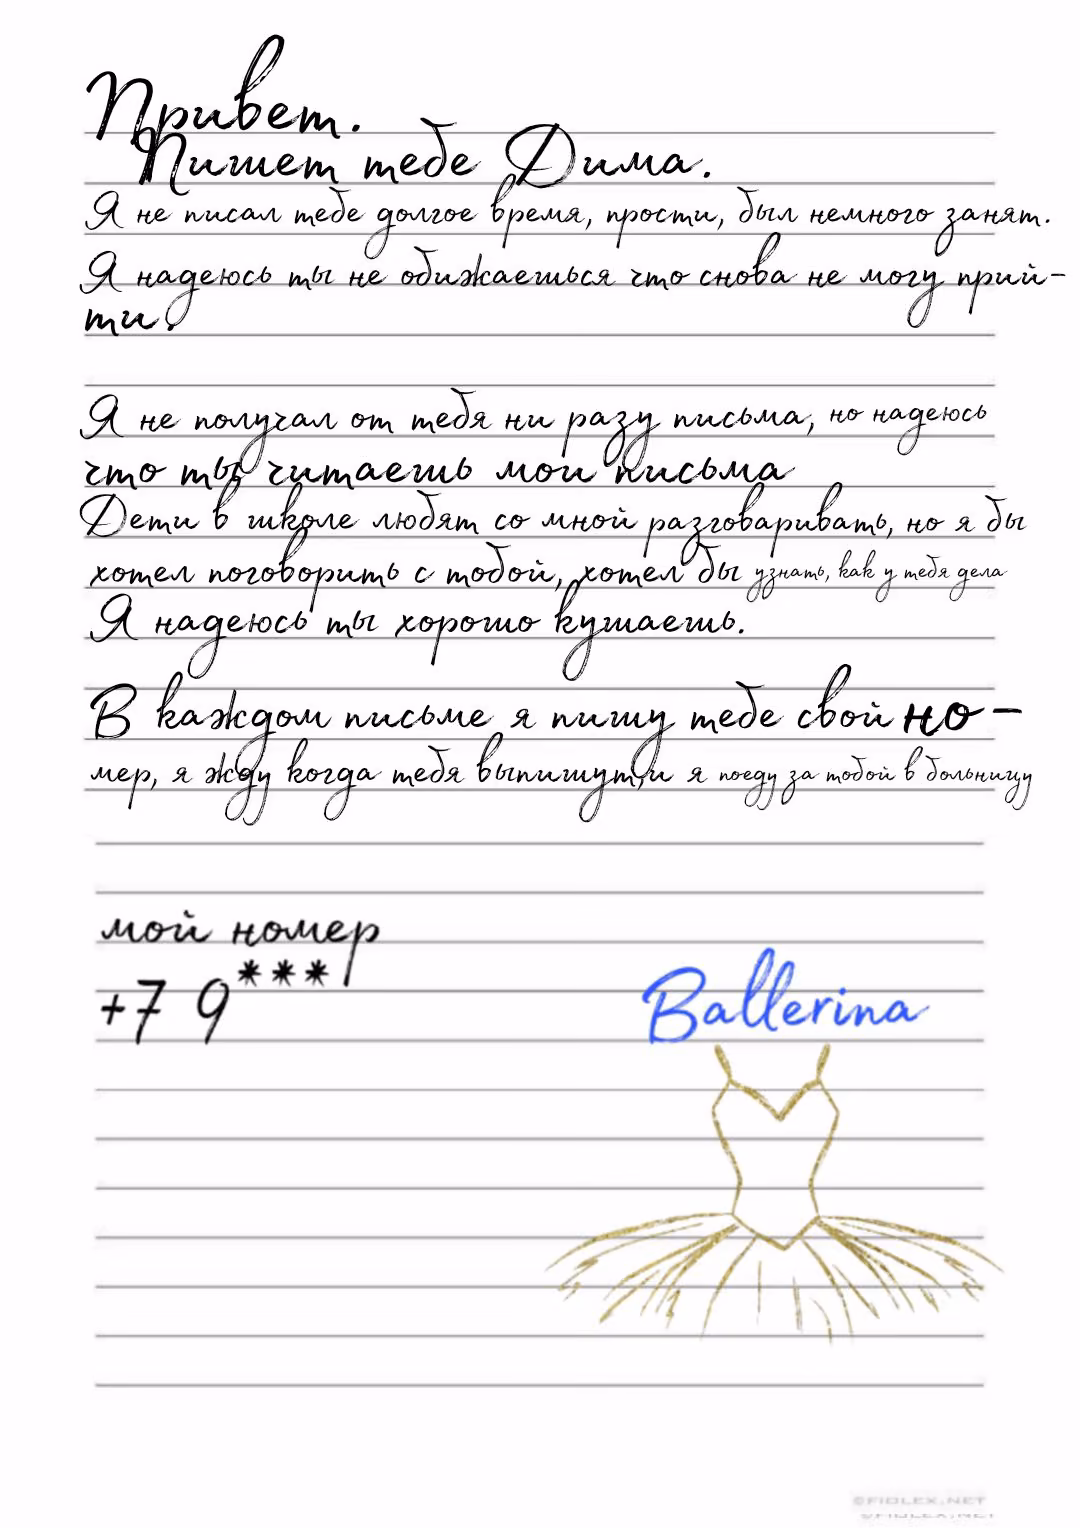 Привет.
Пишет тебе Дима.
Я не писал тебе долгое время, прости, был немного занят.
Я надеюсь ты не обижаешься что снова не могу прий-
ти.
Я не получал от тебя ни разу письма, но надеюсь
что ты читаешь мои письма
Дети в школе любят со мной разговаривать, но я бы
хотел поговорить с тобой, хотел бы узнать, как у тебя дела
Я надеюсь ты хорошо кушаешь.
В каждом письме я пишу тебе свой но-
мер, я жду когда тебя выпишут,и я поеду за тобой в больницу
мой номер
+7 9***
Ballerina
©FIOLEX.NET
©FIOLEX.NET